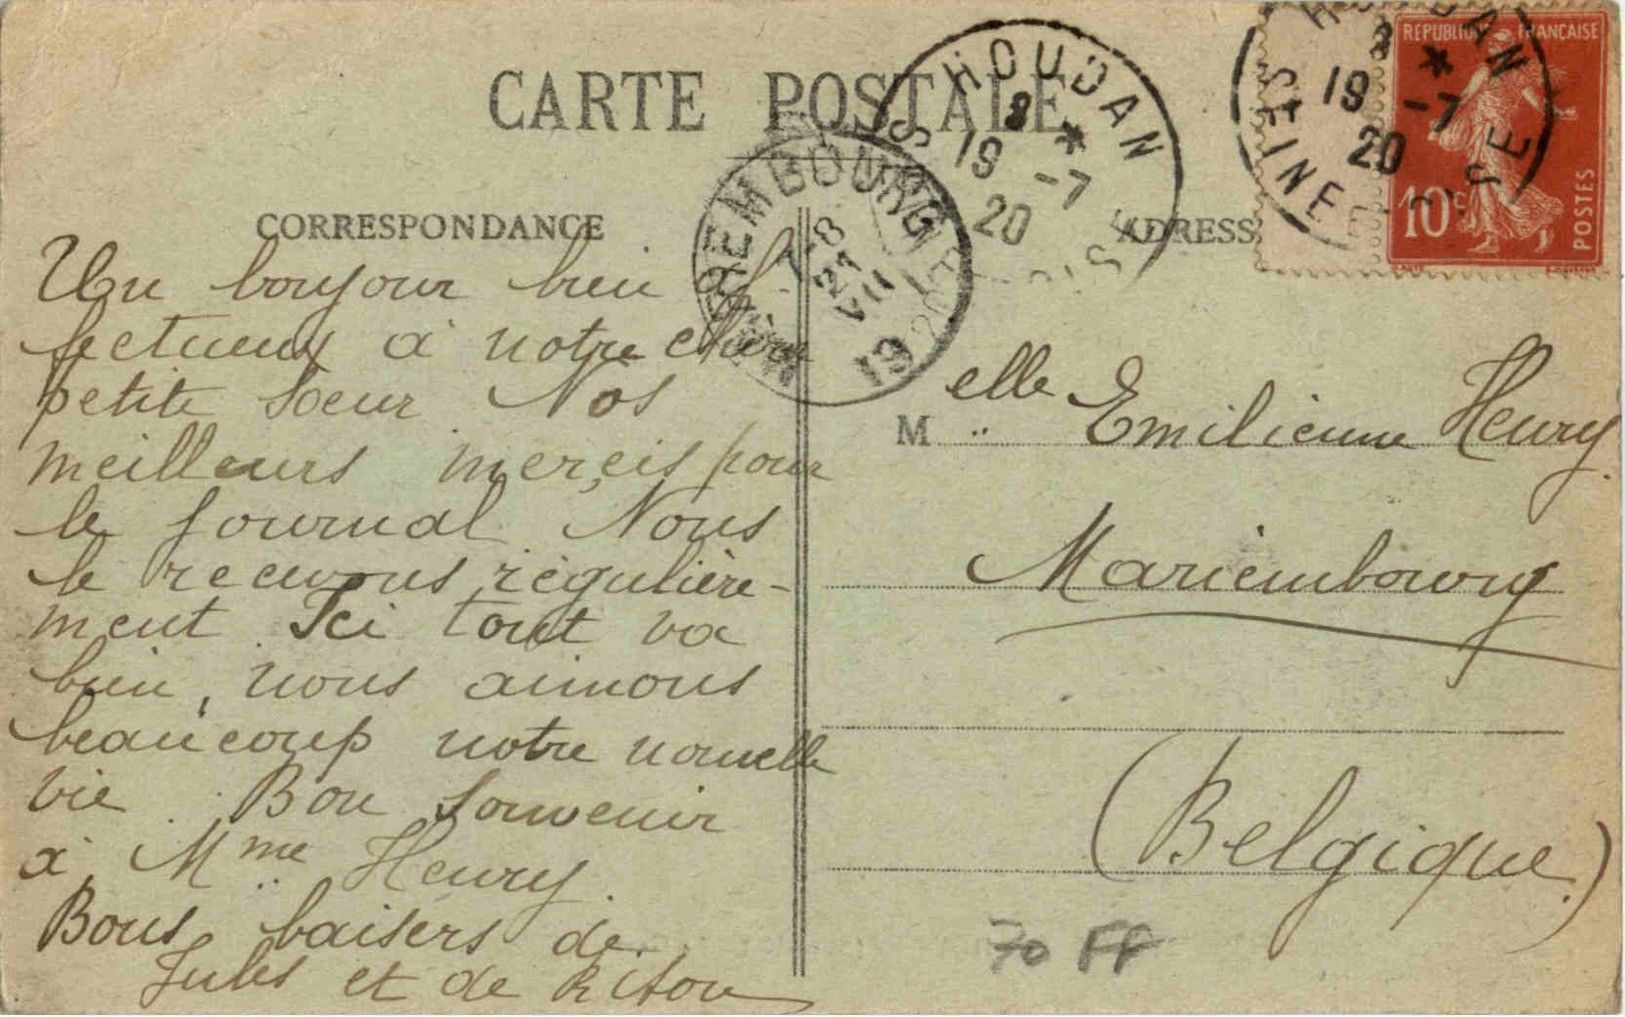 CARTE POSTALE
CORRESPONDANCE
Un bonjour bien af
fectueux à notre chère
petite soeur Nos
meilleurs merçis pour
le journal. Nous
le recevons régulière-
ment. Ici tout va
bien, nous aimons
beaucoup notre nouvelle
vie. Bon souvenir
à Mme Henry.
Bons baisers de
Jules et de Riton
MARIEMBOURG
7-8
21
VII
1920
HOUDAN
8 *
19 -7
20
S
OISE
HOUDAN
8 *
19 -7
20
SEINE ET OISE
REPUBLIQUE FRANÇAISE
10c
POSTES
ADRESSE
Melle Emilienne Henry.
Mariembourg
(Belgique)
70 FF